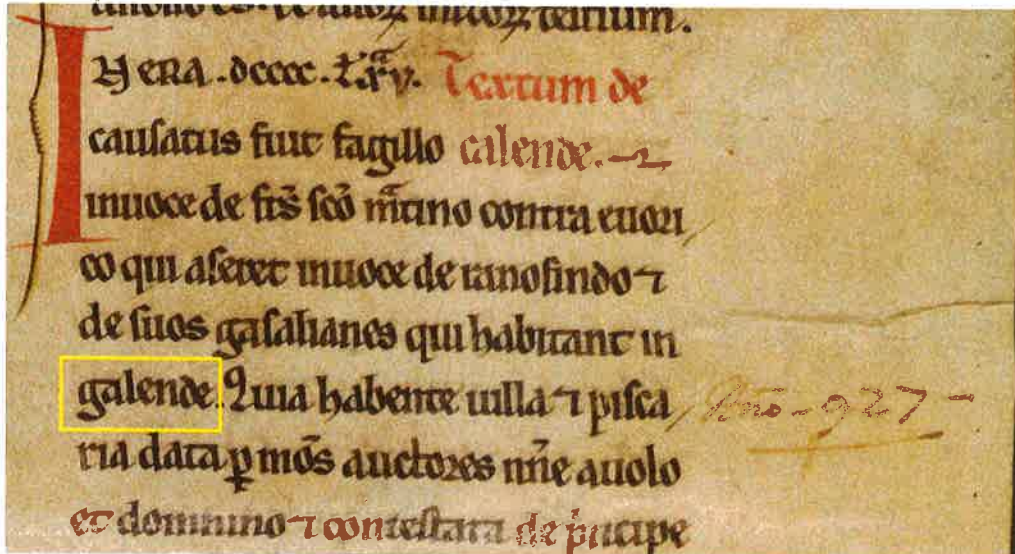 tertium.
IN ERA .dcccc. Lxᵃv. Textum de
causatus fuit fagillo calende.
inuoce de fr̄s sc̄o m̄tino contra euori
co qui aseret inuoce de ranosindo ⁊
de suos gasalianes qui habitant in
galende. Quia habente uilla ⁊ pisca
Año - 927 -
ria data ꝑ mōs auctores nr̄e auolo
et domnino ⁊ contestata de p̍ncipe